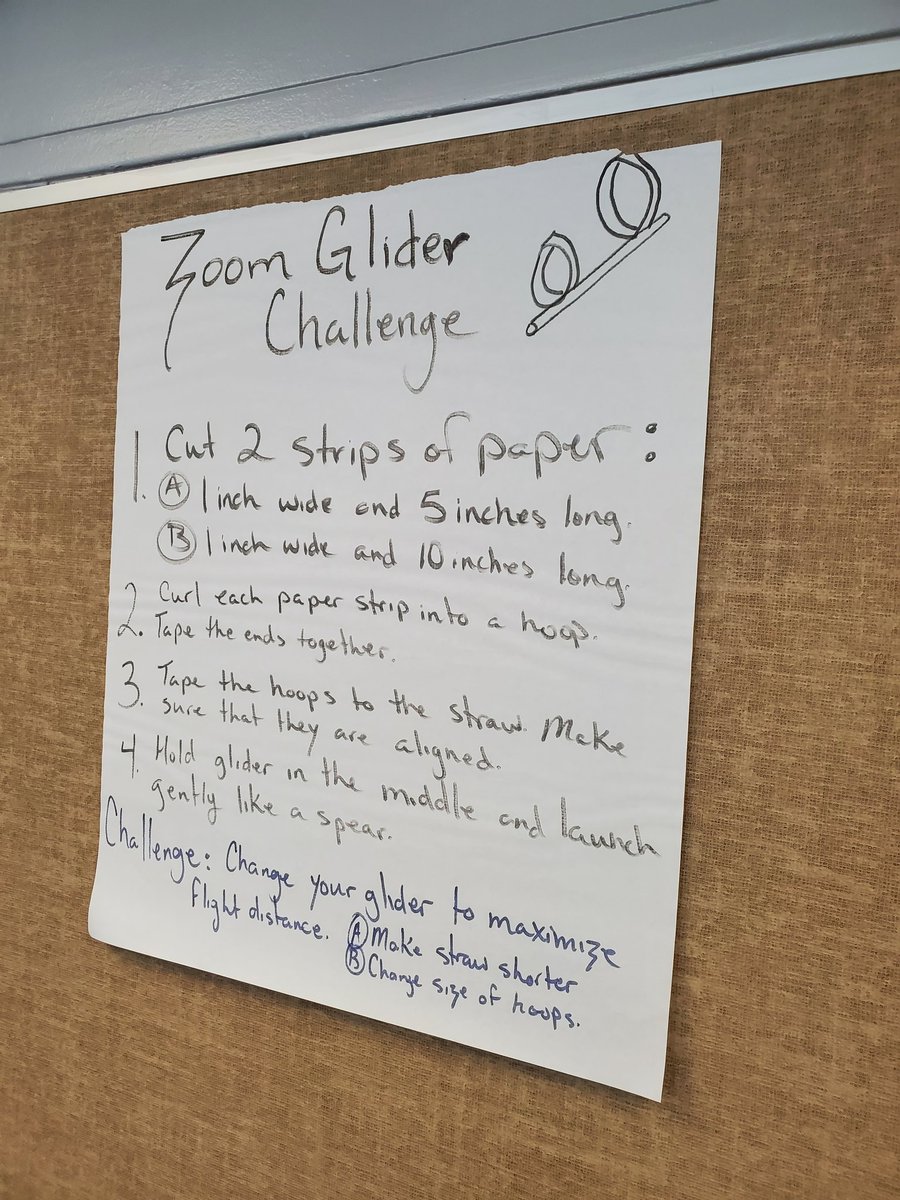 Zoom Glider
Challenge
1. Cut 2 strips of paper:
A 1 inch wide and 5 inches long.
B 1 inch wide and 10 inches long.
2. Curl each paper strip into a hoop.
Tape the ends together.
3. Tape the hoops to the straw. Make
sure that they are aligned.
4. Hold glider in the middle and launch
gently like a spear.
Challenge: Change your glider to maximize
flight distance. A Make straw shorter
B Change size of hoops.